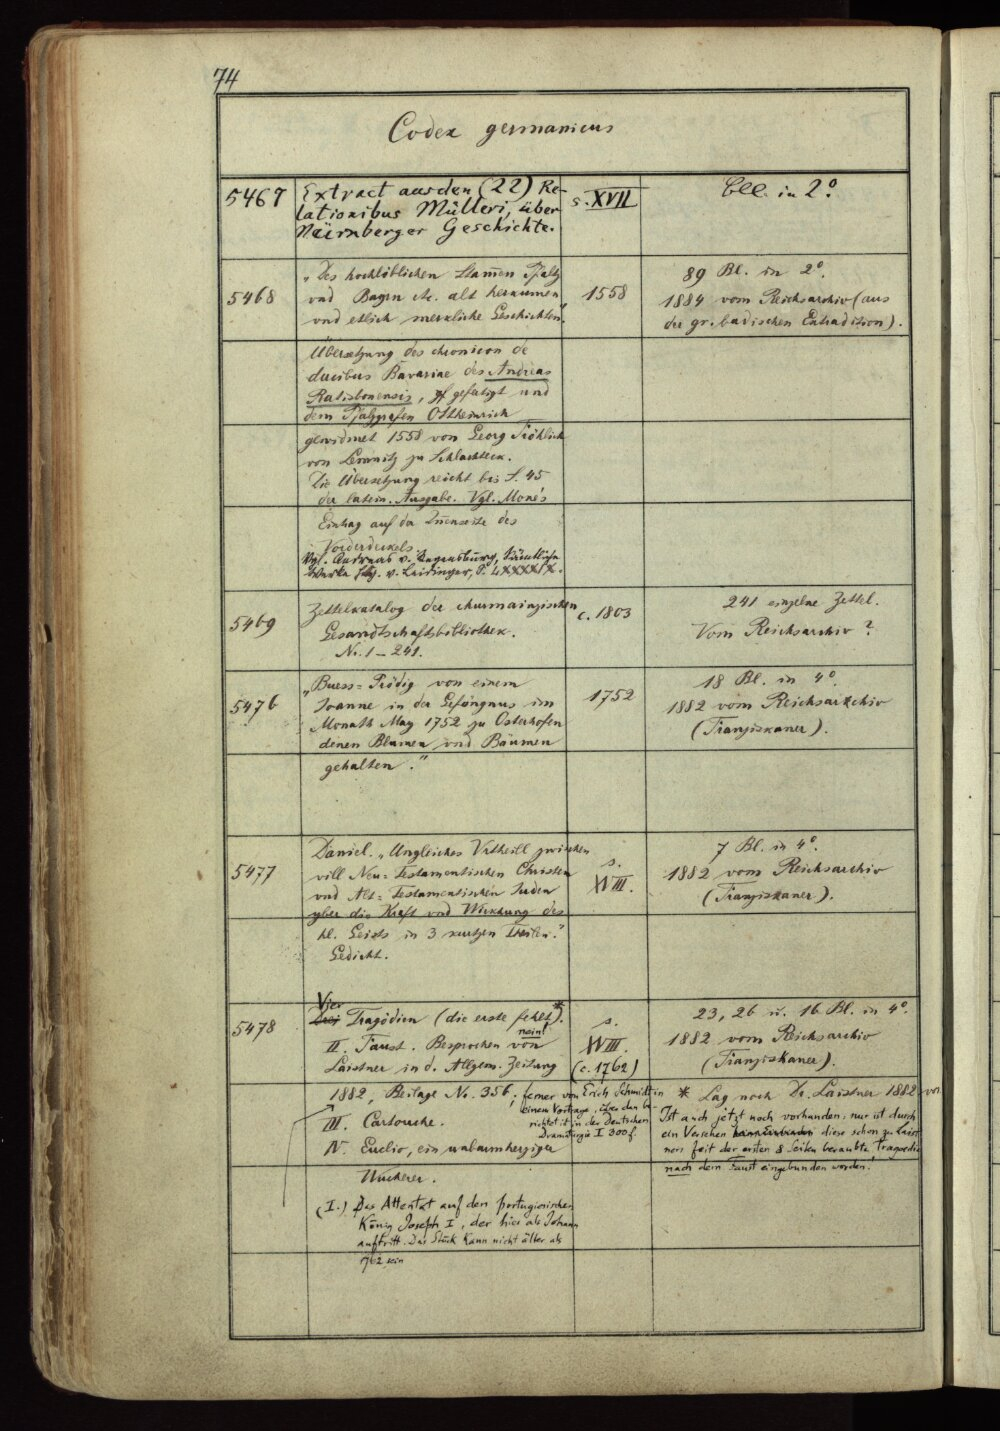 74
Codex germanicus
5467
Extract aus den (22) Re-
lationibus Mülleri, über
Nürnberger Geschichte.
s. XVII
in 2°.
5468
"Des hochlöblichen Stamen Pfaltz
vnd Bayrn etc. alt herkumen
vnd etlich merckliche Geschichten"
1558
89 Bl. in 2°.
1884 vom Reichsarchiv (aus
der gr. badischen Extradition).
Übersetzung des chronicon de
ducibus Bavariae des Andreas
Ratisbonensis, gefertigt und
dem Pfalzgrafen Ottheinrich
gewidmet 1558 von Georg Fröhlich
von Lemnitz zu Schlachteck.
Die Übersetzung reicht bis S. 45
der latein. Ausgabe. Vgl. Mone's
Eintrag auf der Innenseite des
Vorderdeckels.
Vgl. Andreas v. Regensburg, Sämtliche
Werke hg. v. Leidinger, S. LXXXXIX.
5469
Zettelkatalog der churmainzischen
Gesandtschaftsbibliothek.
No. 1 – 241.
c. 1803
241 einzelne Zettel.
Vom Reichsarchiv?
5476
"Buess-Prödig von einem
Joanne in der Gefängnus im
Monath May 1752 zu Osterhofen
denen Blumen und Bäumen
gehalten."
1752
18 Bl. in 4°.
1882 vom Reichsarchiv
(Franziskaner).
5477
Daniel. "Ungleiches Vrtheill zwischen
vill Neu-Testamentischen Christen
vnd Alt-Testamentischen Juden
yber die Kraft vnd Würckung des
hl. Geists in 3 kurtzen Theilen."
Gedicht.
s.
XVIII.
7 Bl. in 4°.
1882 vom Reichsarchiv
(Franziskaner).
5478
Vier
Drei Tragödien (die erste fehlt).*
nein!
II. Faust. Besprochen von
Laistner in d. Allgem. Zeitung
1882, Beilage No. 356; ferner von Erich Schmidt in
einem Vortrage, über den be-
richtet ist in der Deutschen
Dramaturgie I 300 f.
III. Cartouche.
IV. Euclio, ein unbarmherziger
Wucherer.
(I.) Das Attentat auf den portugiesischen
König Joseph I, der hier als Johann
auftritt. Das Stück kann nicht älter als
1762 sein
s.
XVIII.
(c. 1762)
23, 26 u. 16 Bl. in 4°.
1882 vom Reichsarchiv
(Franziskaner).
* Lag noch Dr. Laistner 1882 vor.
Ist auch jetzt noch vorhanden; nur ist durch
ein Versehen diese schon zu Laist-
ners Zeit der ersten 8 Seiten beraubte Tragoedie
nach dem Faust eingebunden worden!